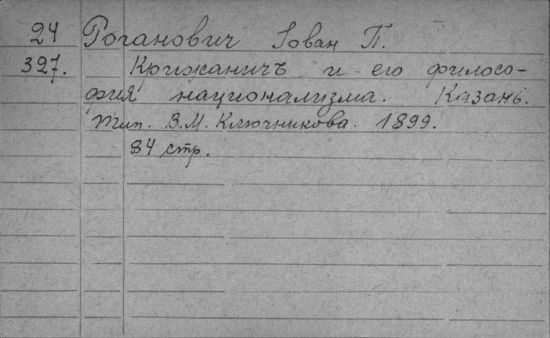 24 Роганович Іован П.
327. Крижаничъ и его филосо-
фия национализма. Казань.
тип. В.М. Ключникова. 1899.
84 стр.